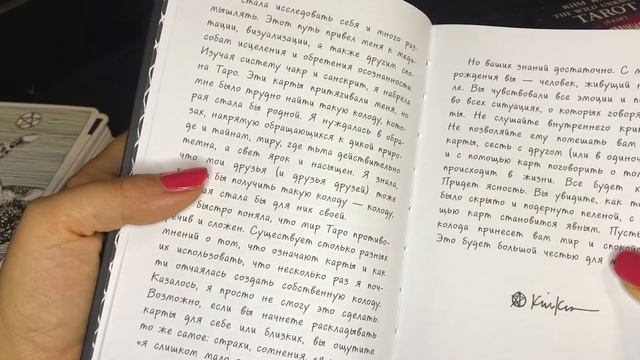 стала исследовать себя и много раз-
мышлять. Этот путь привел меня к меди-
тации, визуализации, а также другим спо-
собам исцеления и обретения осознанности.
Изучая систему чакр и санскрит, я набрела
на Таро. Эти карты притягивали меня, но
мне было трудно найти такую колоду, кото-
рая стала бы родной. Я нуждалась в обра-
зах, напрямую обращающихся к дикой приро-
де и тайнам, миру, где тьма действительно
темна, а свет ярок и насыщен. Я знала,
что мои друзья (и друзья друзей) тоже
бы получить такую колоду — колоду,
ая стала бы для них своей.
быстро поняла, что мир Таро противо-
речив и сложен. Существует столько разных
мнений о том, что означают карты и как
их использовать, что несколько раз я поч-
ти отчаялась создать собственную колоду.
Казалось, я просто не смогу это сделать.
Возможно, если вы начнете раскладывать
карты для себе или близких, вы ощутите
то же самое: страхи, сомнения.
«я слишком мало
Но ваших знаний достаточно. С м
рождения вы — человек, живущий н
ле. Вы чувствовали все эмоции и
во всех ситуациях, о которых говоря
ты. Не слушайте внутреннего кри
Не позволяйте ему помешать вам
карты, сесть с другом (или в одиноч
и с помощью карт поговорить о то
происходит в жизни. Все будет
Придет ясность. Вы увидите, как т
было скрыто и подернуто пеленой, с
щью карт становится явным. Пусть
колода принесет вам мир и спокой
Это будет большой честью для
TAROT